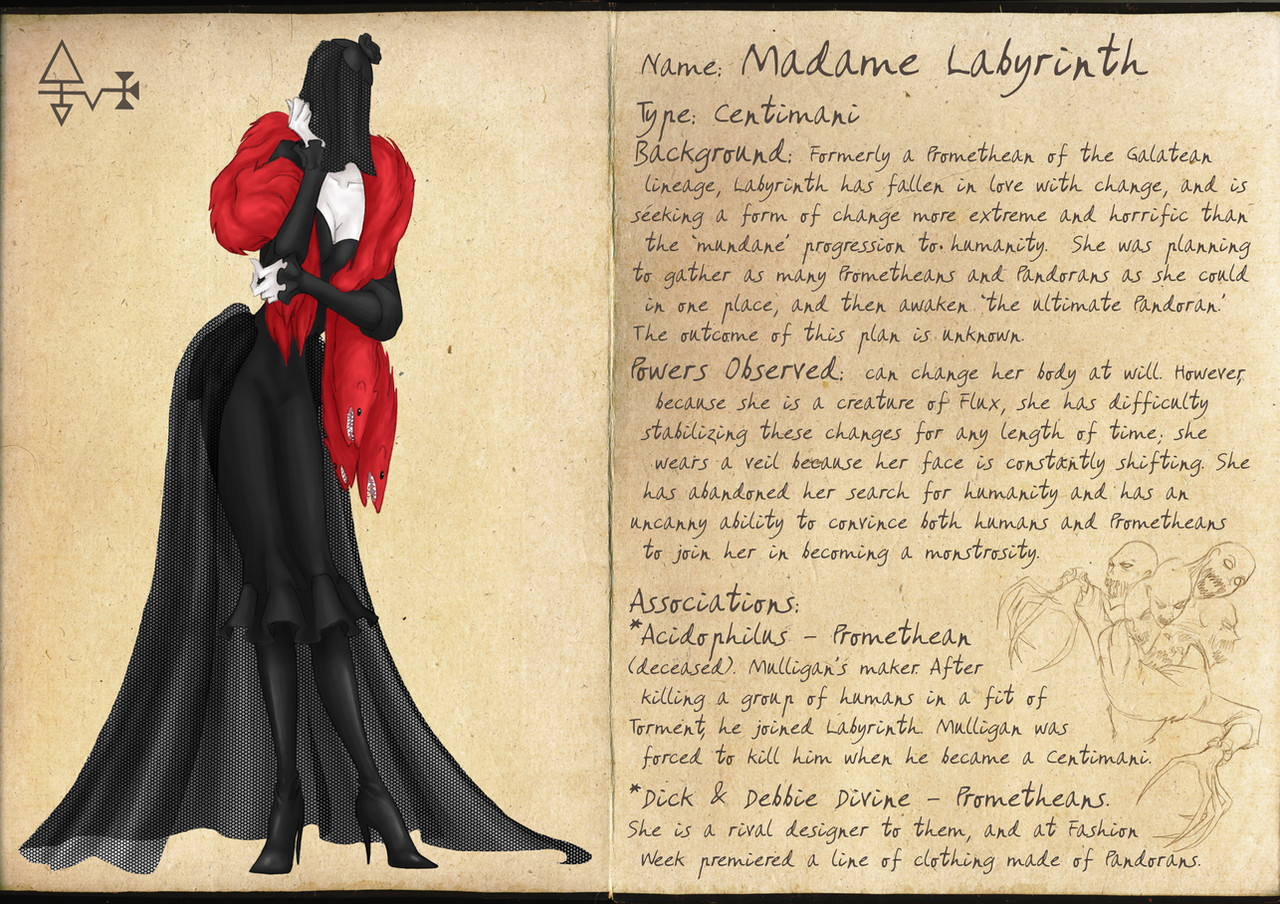 Name: Madame Labyrinth
Type: Centimani
Background: Formerly a Promethean of the Galatean
lineage, Labyrinth has fallen in love with change, and is
seeking a form of change more extreme and horrific than
the 'mundane' progression to humanity. She was planning
to gather as many Prometheans and Pandorans as she could
in one place, and then awaken 'the ultimate Pandoran.'
The outcome of this plan is unknown.
Powers Observed: can change her body at will. However,
because she is a creature of Flux, she has difficulty
stabilizing these changes for any length of time; she
wears a veil because her face is constantly shifting. She
has abandoned her search for humanity and has an
uncanny ability to convince both humans and Prometheans
to join her in becoming a monstrosity.
Associations:
*Acidophilus - Promethean
(deceased). Mulligan's maker. After
killing a group of humans in a fit of
Torment, he joined Labyrinth. Mulligan was
forced to kill him when he became a Centimani.
*Dick & Debbie Divine - Prometheans.
She is a rival designer to them, and at Fashion
Week premiered a line of clothing made of Pandorans.